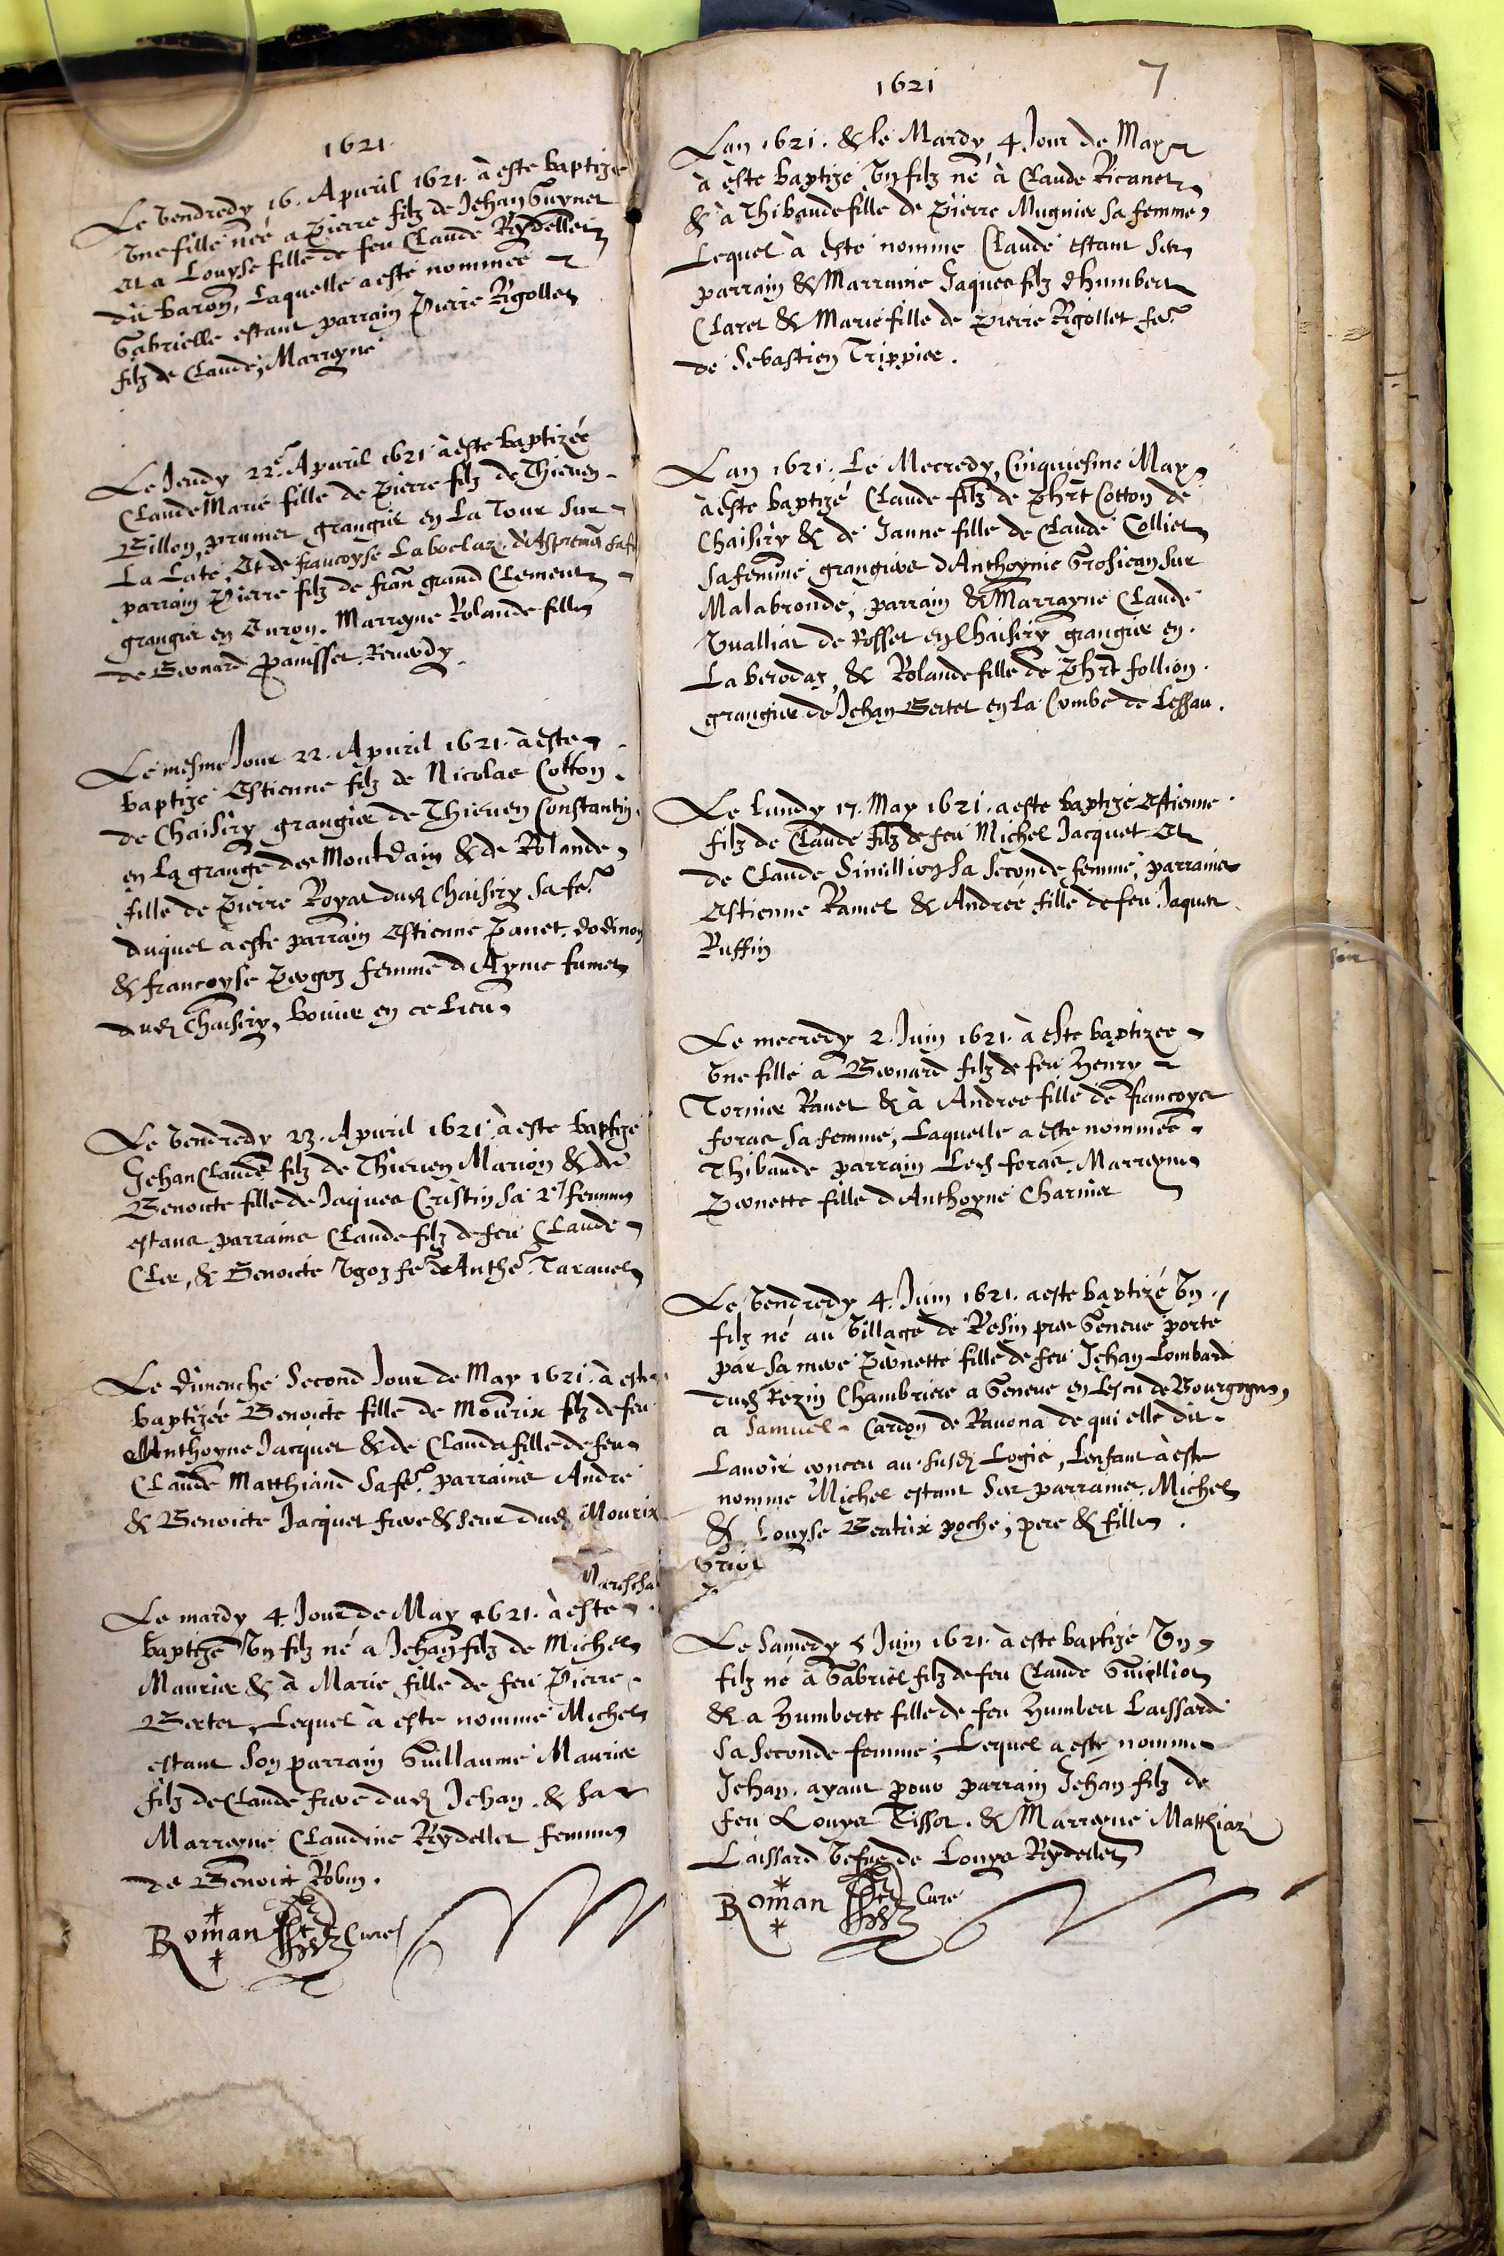 1621.
Le Vendredy 16. Apuril 1621. à este baptizée
Vne fille née a Pierre filz de Jehan Guynet
et a Louyse fille de feu Claude Rydellet
du baron, Laquelle a esté nommée
Gabrielle estant parrain Pierre Rigollet
filz de Claude, Marrayne
Le Jeudy 22e Apuril 1621 à este baptizée
Claude Marie fille de Pierre filz de Thieuen
Billon, prumer grangier en La Tour sur
La Late, Et de francoyse
parrain Pierre filz de fran grand Clement
grangier en Curon. Marrayne Rolande fille
de Bernard panisset
Le mesme Jour 22. Apuril 1621. à este
baptizé Estienne filz de Nicolas Cotton
de Chaisiry grangier de Thieuen Constantin
en La grange des Montdain & de Rolande
fille de Pierre Royat dud Chaisiry sa fe.
duquel à este parrain Estienne Panet
& francoyse femme d Ayme fumet
dud Chaisiry, en ce Lieu
Le Vendredy 23. Apuril 1621. à este baptizé
Jehan Claude filz de Thieuen Marion & de
Benoicte fille de Jaques Cristin sa 2e femme
estans parrains Claude filz de feu Claude
Cler, & Benoicte Vgoz fe de Anthe. Tarauel
Le dimenche Second Jour de May 1621. à este
baptizée Benoicte fille de Mourix filz de feu
Anthoyne Jacquet & de Clauda fille de feu
Claude Matthiand sa fe. parrains André
& Benoicte Jacquet frere & seur dud Mourix
Mareschal
Le mardy 4. Jour de May 1621. à este
baptizé Vn filz né a Jehan filz de Michel
Maurier & à Marie fille de feu Pierre
Bertet, Lequel à este nommé Michel
estant son parrain Guillaume Maurier
filz de Claude frere dud Jehan. & sa
Marrayne Claudine Rydellet femme
de Benoict Robin.
Roman Curé
1621 7
Lan 1621. & le Mardy, 4 Jour de May
à este baptizé Vn filz né à Claude Ricanet
& à Thibaude fille de Pierre Mugnier sa femme,
Lequel à esté nommé Claude estant ses
parrain & Marraine Jaques filz d humbert
Claret & Marie fille de Pierre Rigollet fe.
de Sebastien Trippier.
Lan 1621. Le Mecredy, Cinquiesme May
à este baptizé Claude filz de Phrt Cotton de
Chaisiry & de Janne fille de Claude Colliet
sa femme grangiers d Anthoynie Grosjean sur
Malabronde, parrain & Marrayne Claude
Vualliat de Rosset en Chaisiry grangier en
La berodaz, & Rolande fille de Phrt follion
grangier de Jehan Bertet en La Combe de Lessau.
Le lundy 17. May 1621. a este baptizé Estienne
filz de Claude filz de feu Michel Jacquet et
de Claude sa seconde femme, parrains
Estienne Ramel & Andreé fille de feu Jaques
Ruffin
Le mecredy 2. Juin 1621. à este baptizee
Vne fille à Bernard filz de feu Henry
Tornier Rauet & à Andree fille de francoys
foras sa femme, Laquelle a este nommée
Thibaude parrain Led foras, Marrayne
Pernette fille d Anthoyne Charuier
Le Vendredy 4. Juin 1621. a este baptizé Vn
filz né au Village de Resin pres Geneue porté
par sa mere Pernette fille de feu Jehan Lombard
dud Rezin Chambriere a Geneue en Lescu de Bourgogne,
a Samuel Cardon de Rauona de qui elle dit
Lauoir conceu au susd Logis, Lenfant à este
nommé Michel estant ses parrains Michel
& Louyse Beatrix poche, pere & fille.
Griot
Le Samedy 5 Juin 1621. à este baptizé Vn
filz né à Gabriel filz de feu Claude Guilliot
& a Humberte fille de feu Humbert Laissard
sa seconde femme, Lequel a esté nommé
Jehan. ayant pour parrain Jehan filz de
feu Louys Tissot. & Marrayne Matthiaz
Laissard Vefue de Louys Rydellet
Roman Curé